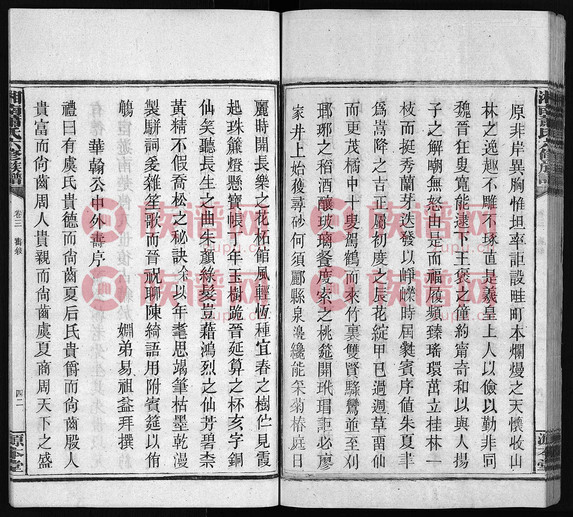 原非岸異胸惟坦率詎設畦町本爛熳之天懷收山
林之逸趣不雕不琢直是羲皇上人以儉以勤非同
魏晉狂叟寬能逮下王褒之僮約甯苛和以與人揚
子之解嘲無怒于是而福履頻臻瑤環萬玉立桂林一
枝挺秀蘭芽迭發以崢嶸時屆甤賓序值朱夏半
而更茂橘中十叟駕鶴而來竹裏雙賢驂鸞並至刈
瑯琊之稻酒釀玻璃餐度索之桃筵開玳瑁詎必廖
為嵩降之吉正屬初度之辰花綻甲已過週草面仙
家井上始獲尋砂何須酈縣泉邊纔能采菊椿庭日
麗時開長樂之花柘館風輕恆種宜春之樹伫見霞
起珠簾燈懸寶帳千年玉樹跪晉延算之杯亥字銅
仙笑聽長生之曲朱顏綠鬢豈藉鴻烈之仙芳碧柰
黃精不假喬松之秘訣余以年耄思竭筆枯墨乾漫
製駢詞爰雜笙歌而晉祝聊陳綺語用附賓筵以侑
觴
姻弟易祖謚拜撰
華翰公中外壽序
禮曰有虞氏貴德而尚齒夏后氏貴爵而尚齒殷人
貴富而尚齒周人貴親而尚齒虞夏商周天下之盛
卷三 壽敘
四二
源本堂
族谱网
zupu.cn